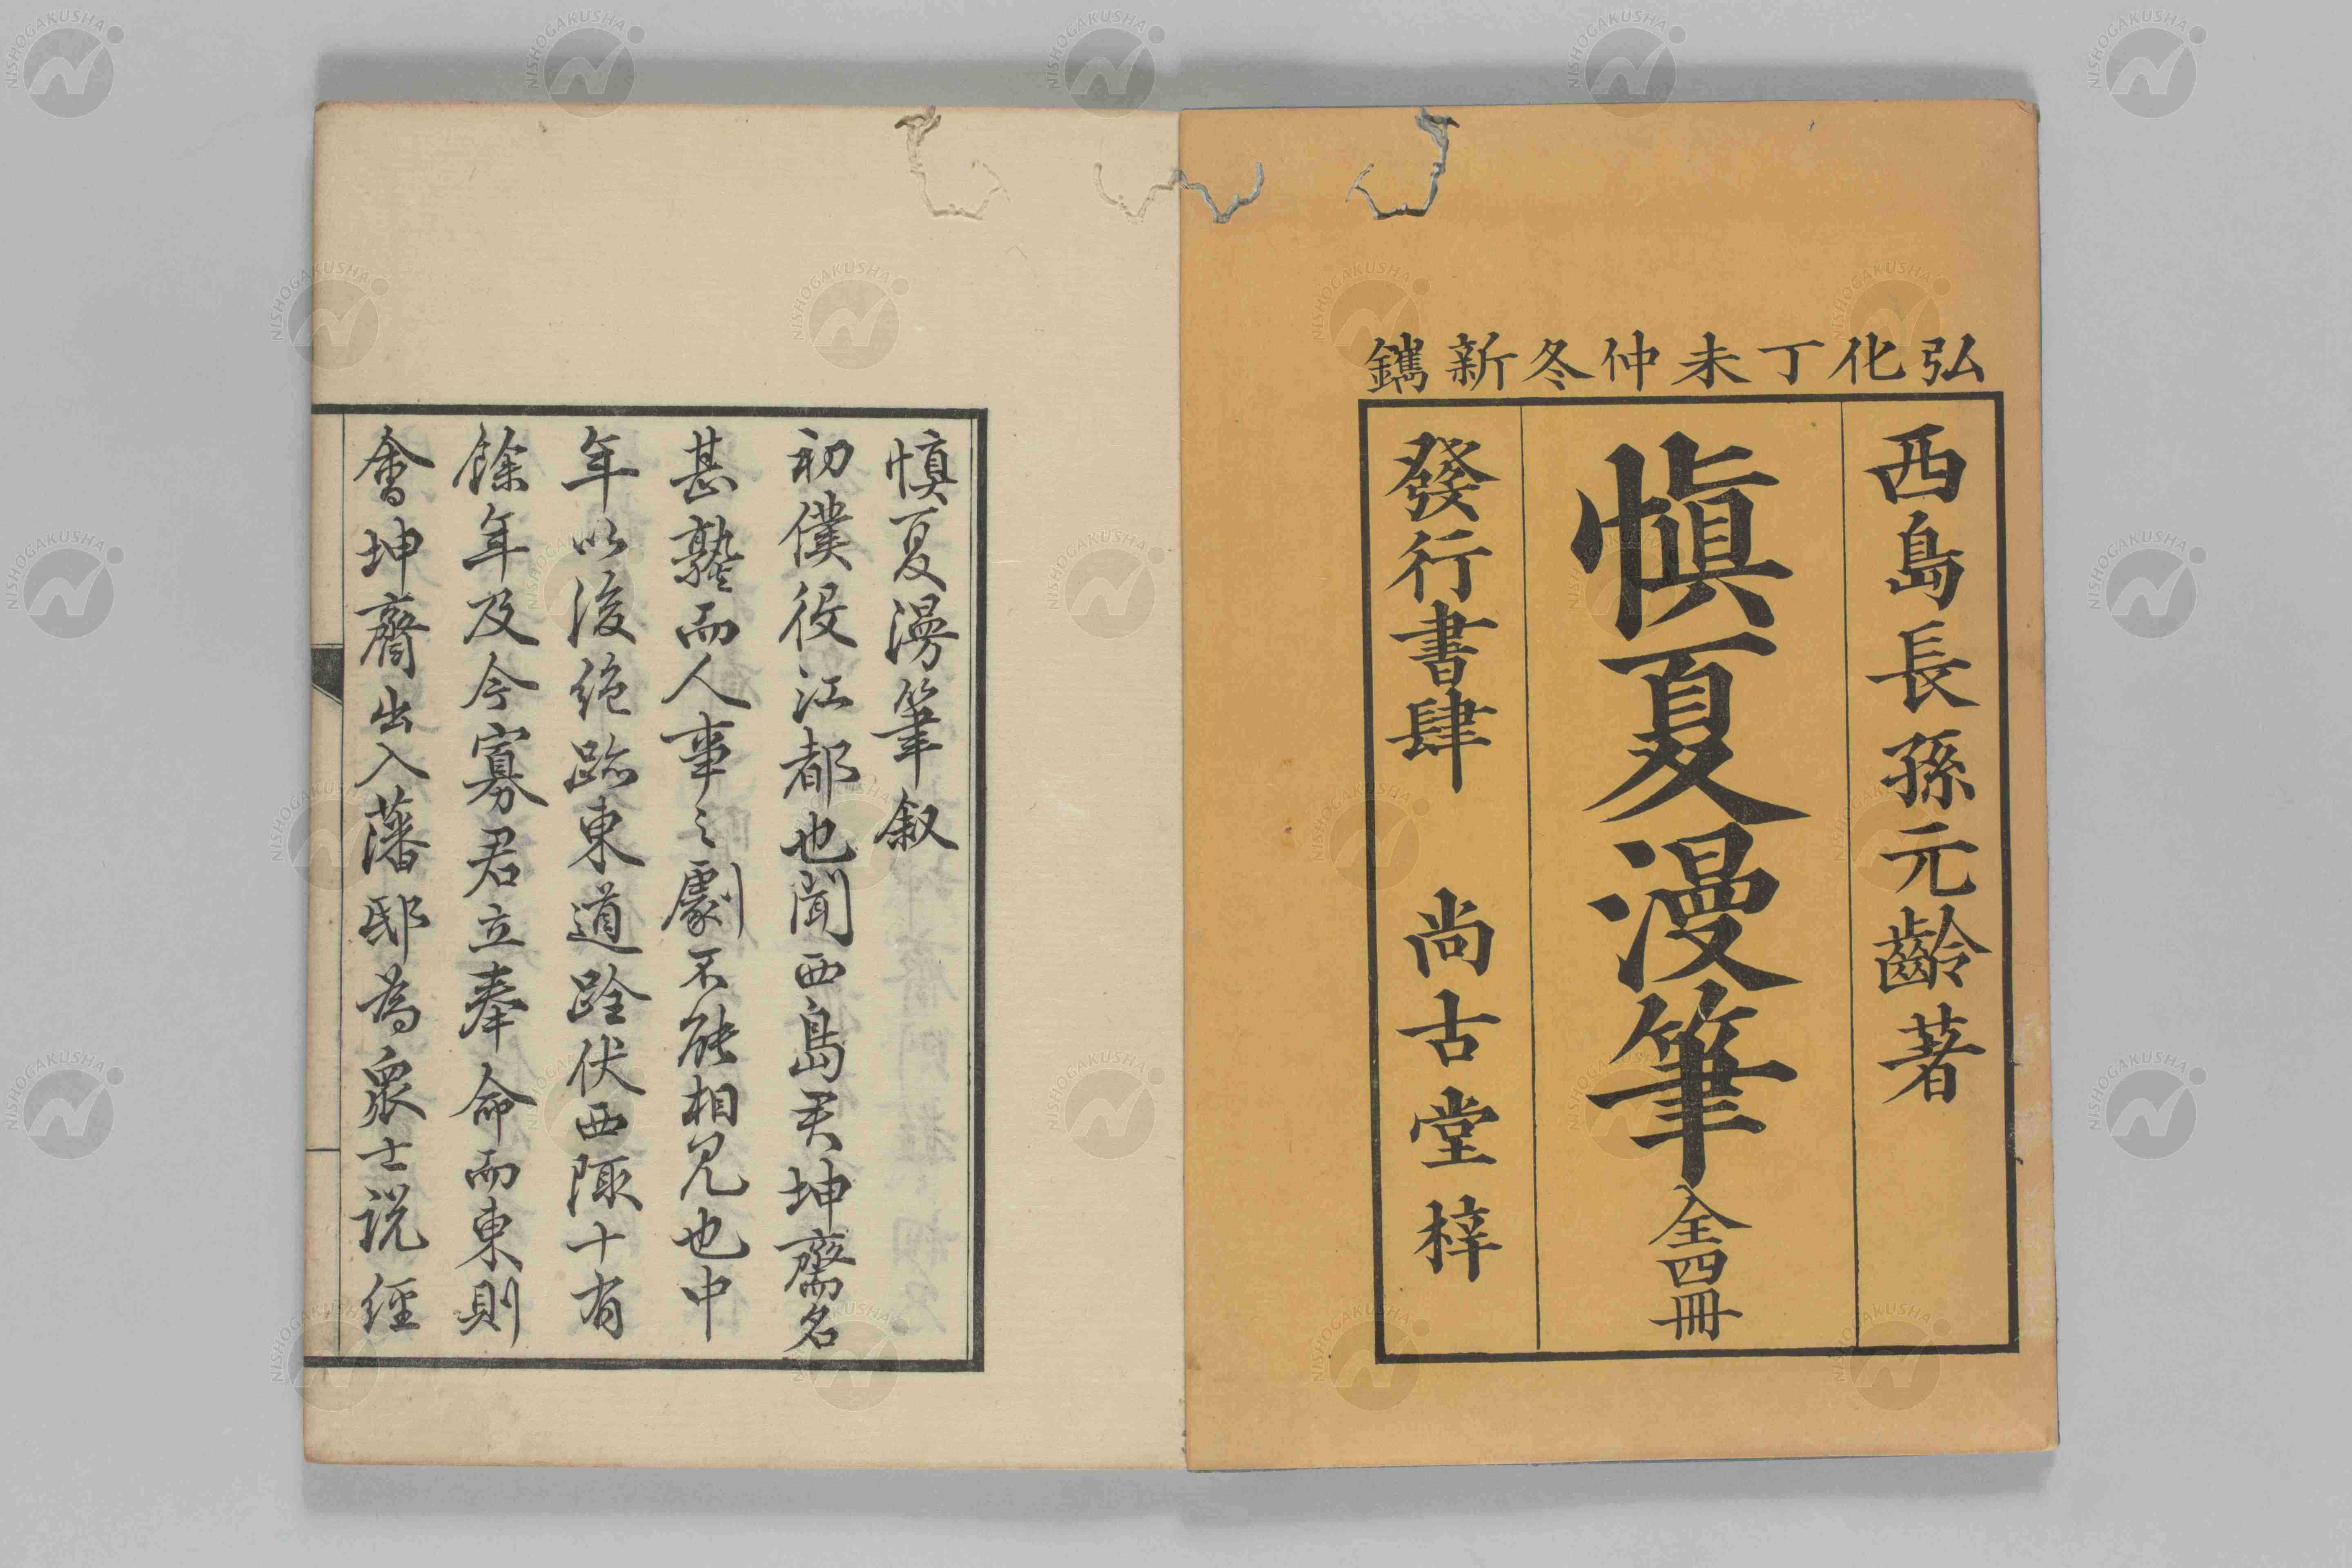 弘化丁未仲冬新鐫
西島長孫元齡著
愼夏漫筆 全四冊
發行書肆 尚古堂梓
愼夏漫筆叙
初僕役江都也聞西島君坤齋名
甚熟而人事之劇不能相見也中
年以後絶跡東道跧伏西陬十有
餘年及今寡君立奉命而東則
會坤齋出入藩邸為衆士説經
NISHOGAKUSHA